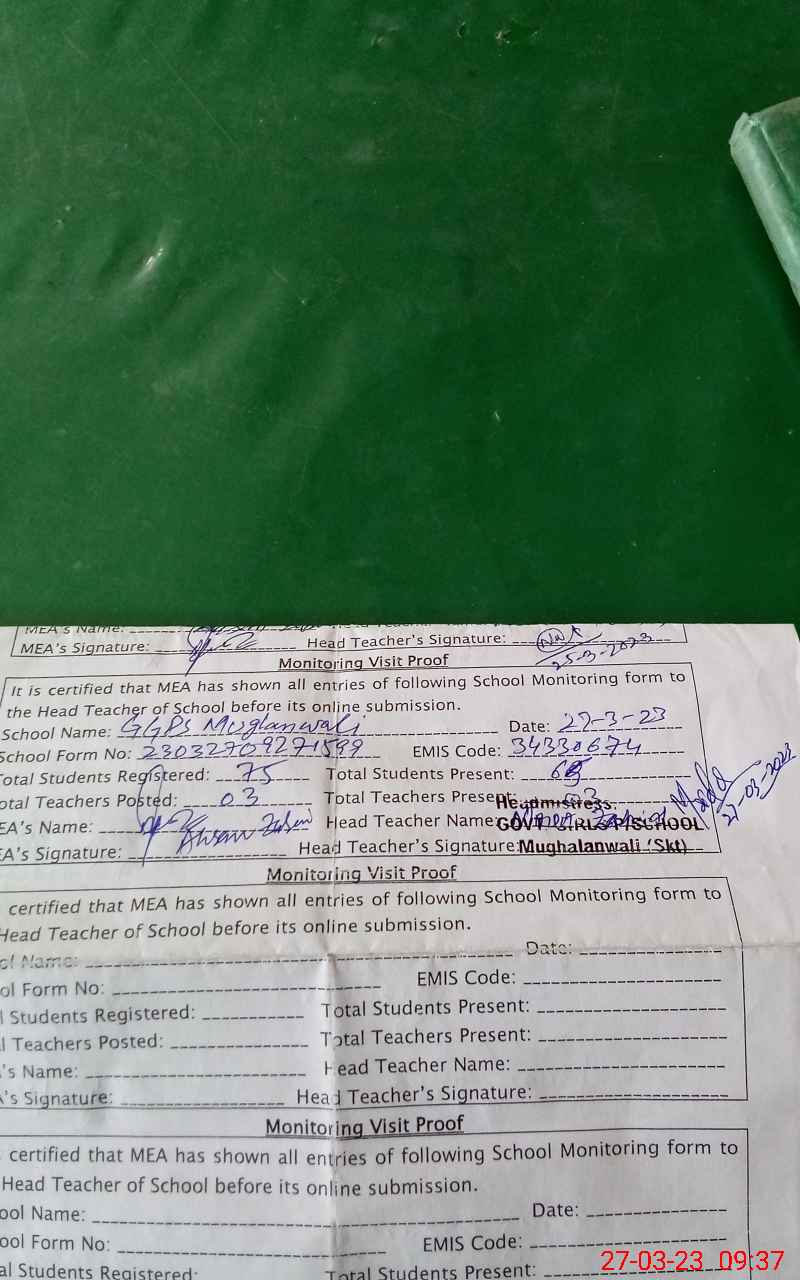 MEA's Name:
MEA's Signature: Head Teacher's Signature:
25-3-2023
Monitoring Visit Proof
It is certified that MEA has shown all entries of following School Monitoring form to
the Head Teacher of School before its online submission.
School Name: GGPS Muglanwali Date: 27-3-23
School Form No: 23032709271599 EMIS Code: 34330674
Total Students Registered: 75 Total Students Present:
otal Teachers Posted: 03 Total Teachers Present: 03
Headmistress
EA's Name: Head Teacher Name:
GOVT GIRLS P/SCHOOL
27-03-2023
EA's Signature: Head Teacher's Signature: Mughalanwali (Skt)
Monitoring Visit Proof
certified that MEA has shown all entries of following School Monitoring form to
Head Teacher of School before its online submission.
ol Name: Date:
ol Form No: EMIS Code:
l Students Registered: Total Students Present:
l Teachers Posted: Total Teachers Present:
's Name: Head Teacher Name:
A's Signature: Head Teacher's Signature:
Monitoring Visit Proof
certified that MEA has shown all entries of following School Monitoring form to
Head Teacher of School before its online submission.
ool Name: Date:
ool Form No: EMIS Code:
al Students Registered: Total Students Present:
27-03-23 09:37